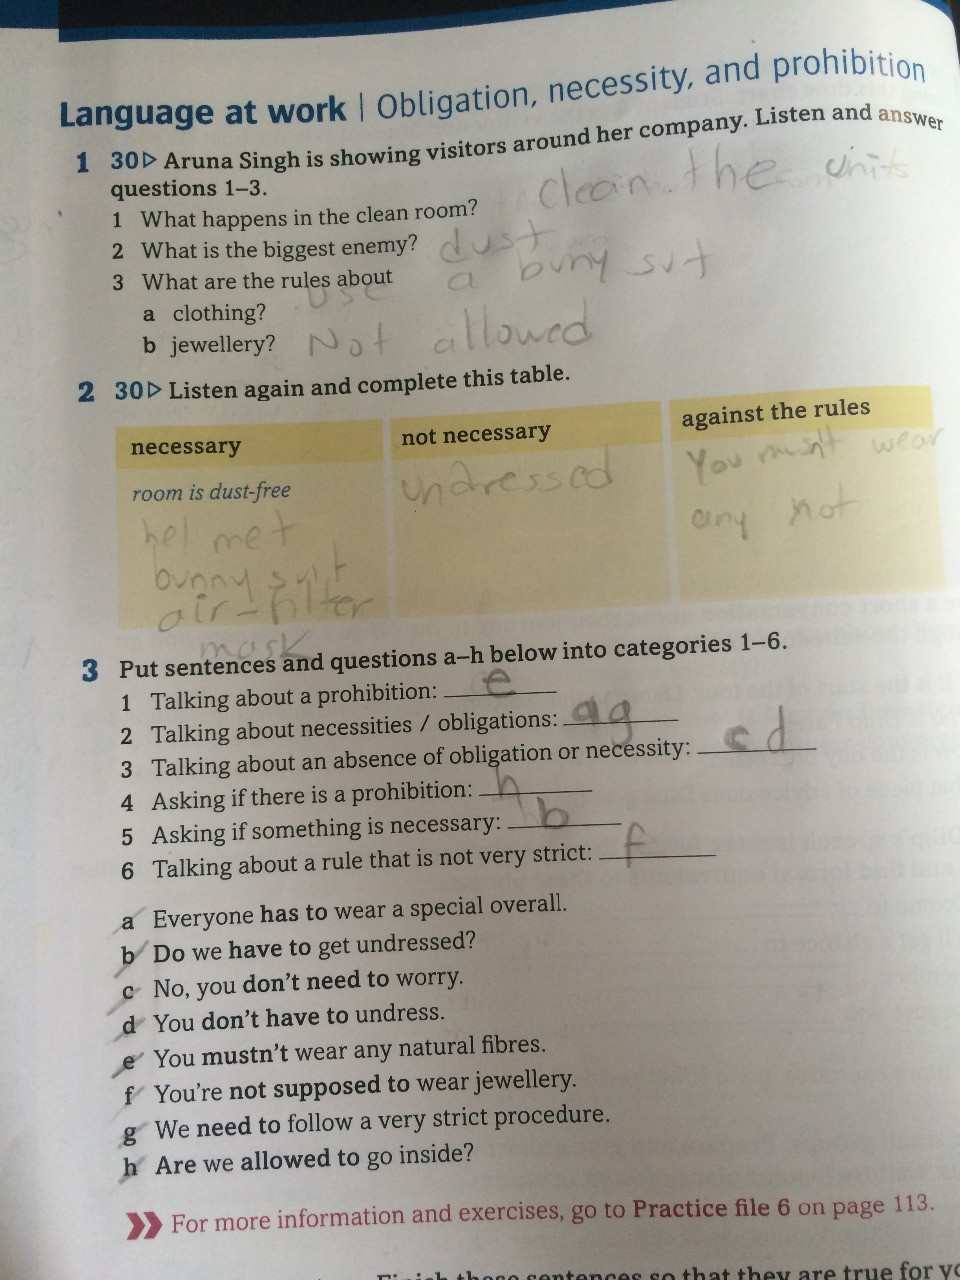 Language at work | Obligation, necessity, and prohibition
1 30▷ Aruna Singh is showing visitors around her company. Listen and answer
questions 1–3.
clean the units
1 What happens in the clean room?
2 What is the biggest enemy? dust
3 What are the rules about
use a buny sut
a clothing?
b jewellery? Not allowed
2 30▷ Listen again and complete this table.
necessary not necessary against the rules
room is dust-free undressed You musn't wear
any not
helmet
bunny suit
air-filter
mask
3 Put sentences and questions a–h below into categories 1–6.
1 Talking about a prohibition: e
2 Talking about necessities / obligations: a g
3 Talking about an absence of obligation or necessity: c d
4 Asking if there is a prohibition: h
5 Asking if something is necessary: b
6 Talking about a rule that is not very strict: f
a Everyone has to wear a special overall.
b Do we have to get undressed?
c No, you don't need to worry.
d You don't have to undress.
e You mustn't wear any natural fibres.
f You're not supposed to wear jewellery.
g We need to follow a very strict procedure.
h Are we allowed to go inside?
For more information and exercises, go to Practice file 6 on page 113.
these sentences so that they are true for